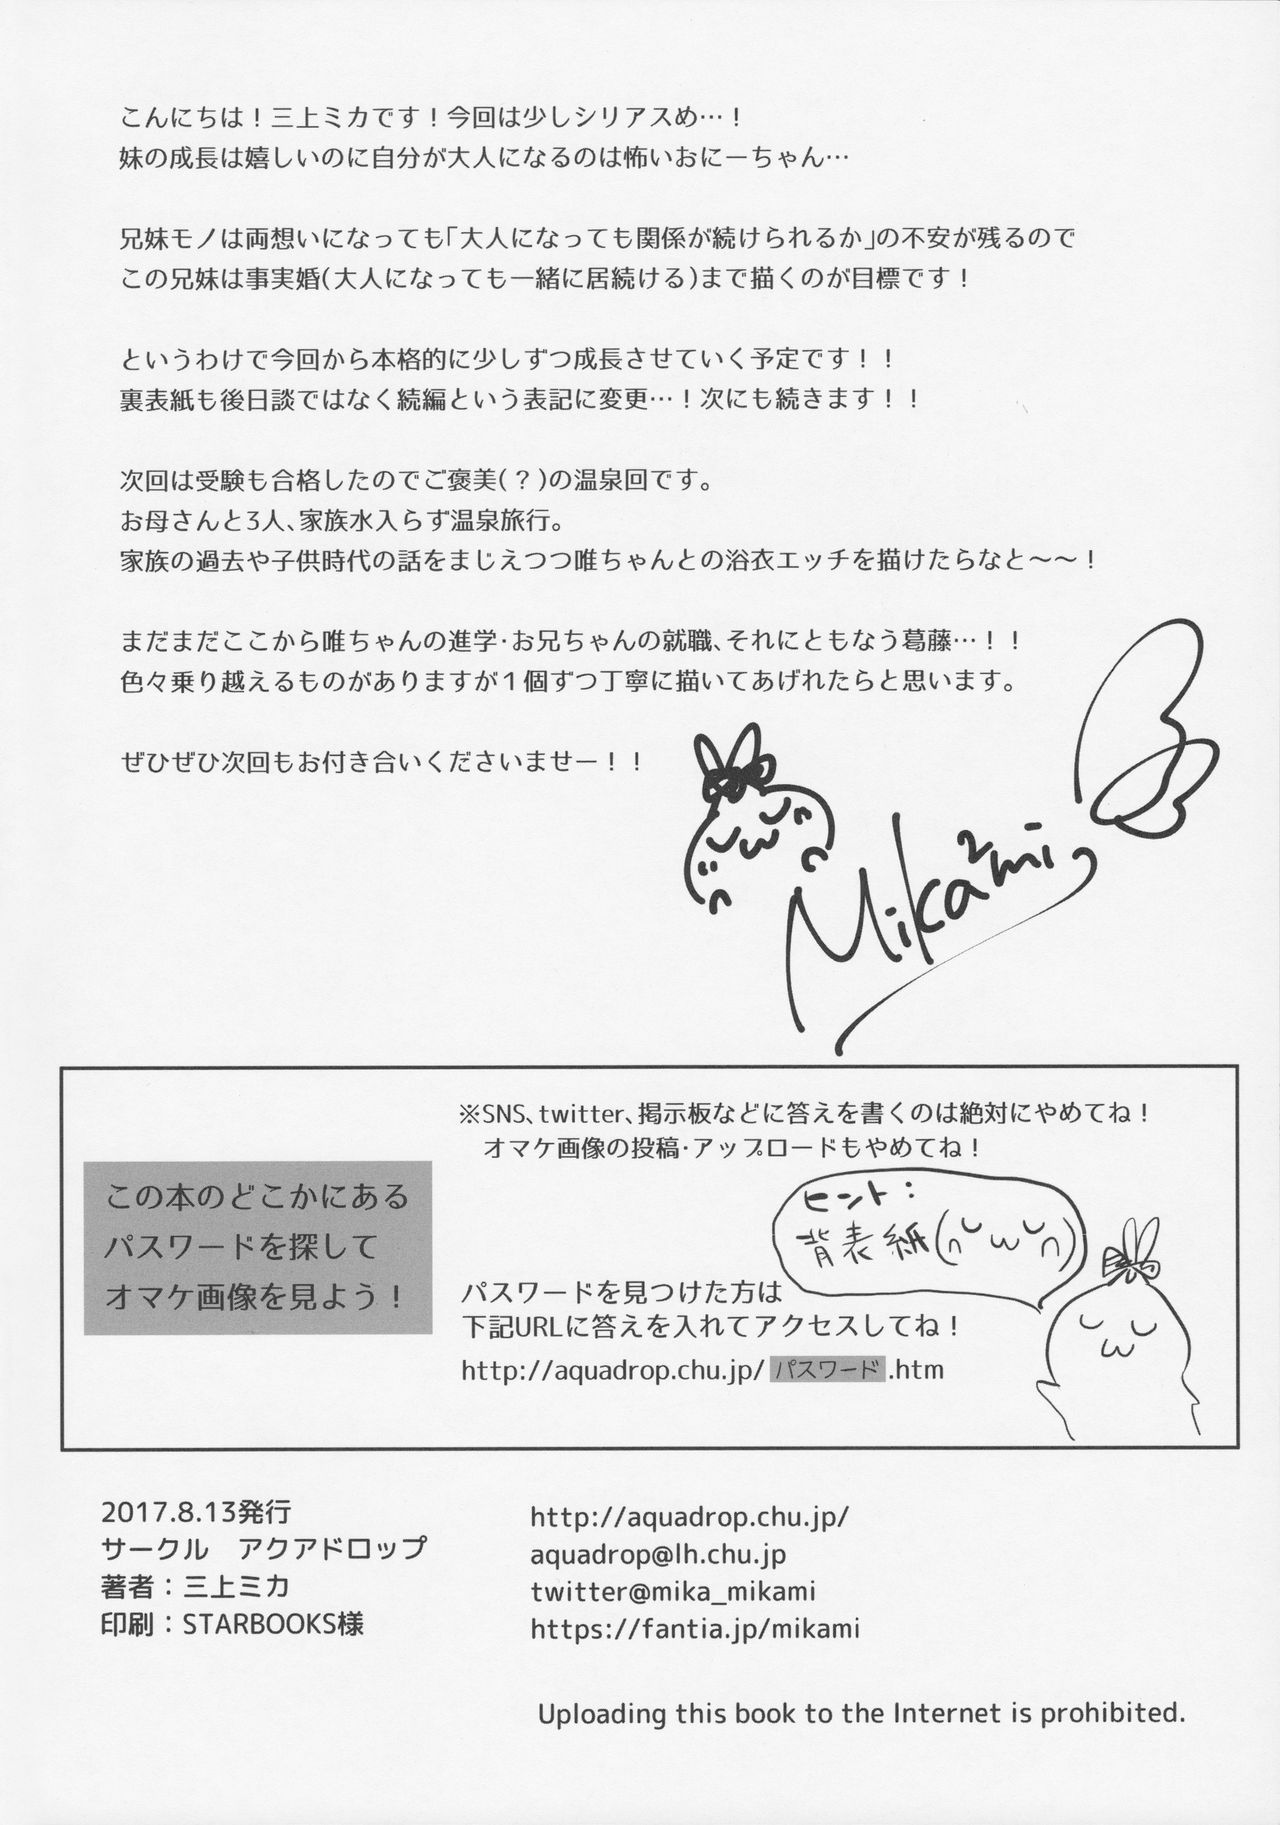 こんにちは！三上ミカです！今回は少しシリアスめ…！
妹の成長は嬉しいのに自分が大人になるのは怖いおにーちゃん…
兄妹モノは両想いになっても「大人になっても関係が続けられるか」の不安が残るので
この兄妹は事実婚(大人になっても一緒に居続ける)まで描くのが目標です！
というわけで今回から本格的に少しずつ成長させていく予定です！！
裏表紙も後日談ではなく続編という表記に変更…！次にも続きます！！
次回は受験も合格したのでご褒美(？)の温泉回です。
お母さんと3人、家族水入らず温泉旅行。
家族の過去や子供時代の話をまじえつつ唯ちゃんとの浴衣エッチを描けたらなと〜〜！
まだまだここから唯ちゃんの進学・お兄ちゃんの就職、それにともなう葛藤…！！
色々乗り越えるものがありますが１個ずつ丁寧に描いてあげれたらと思います。
ぜひぜひ次回もお付き合いくださいませー！！
Mika2mi
※SNS、twitter、掲示板などに答えを書くのは絶対にやめてね！
オマケ画像の投稿・アップロードもやめてね！
この本のどこかにある
パスワードを探して
オマケ画像を見よう！
ヒント：
背表紙
パスワードを見つけた方は
下記URLに答えを入れてアクセスしてね！
http://aquadrop.chu.jp/パスワード.htm
2017.8.13発行
サークル　アクアドロップ
著者：三上ミカ
印刷：STARBOOKS様
http://aquadrop.chu.jp/
aquadrop@lh.chu.jp
twitter@mika_mikami
https://fantia.jp/mikami
Uploading this book to the Internet is prohibited.